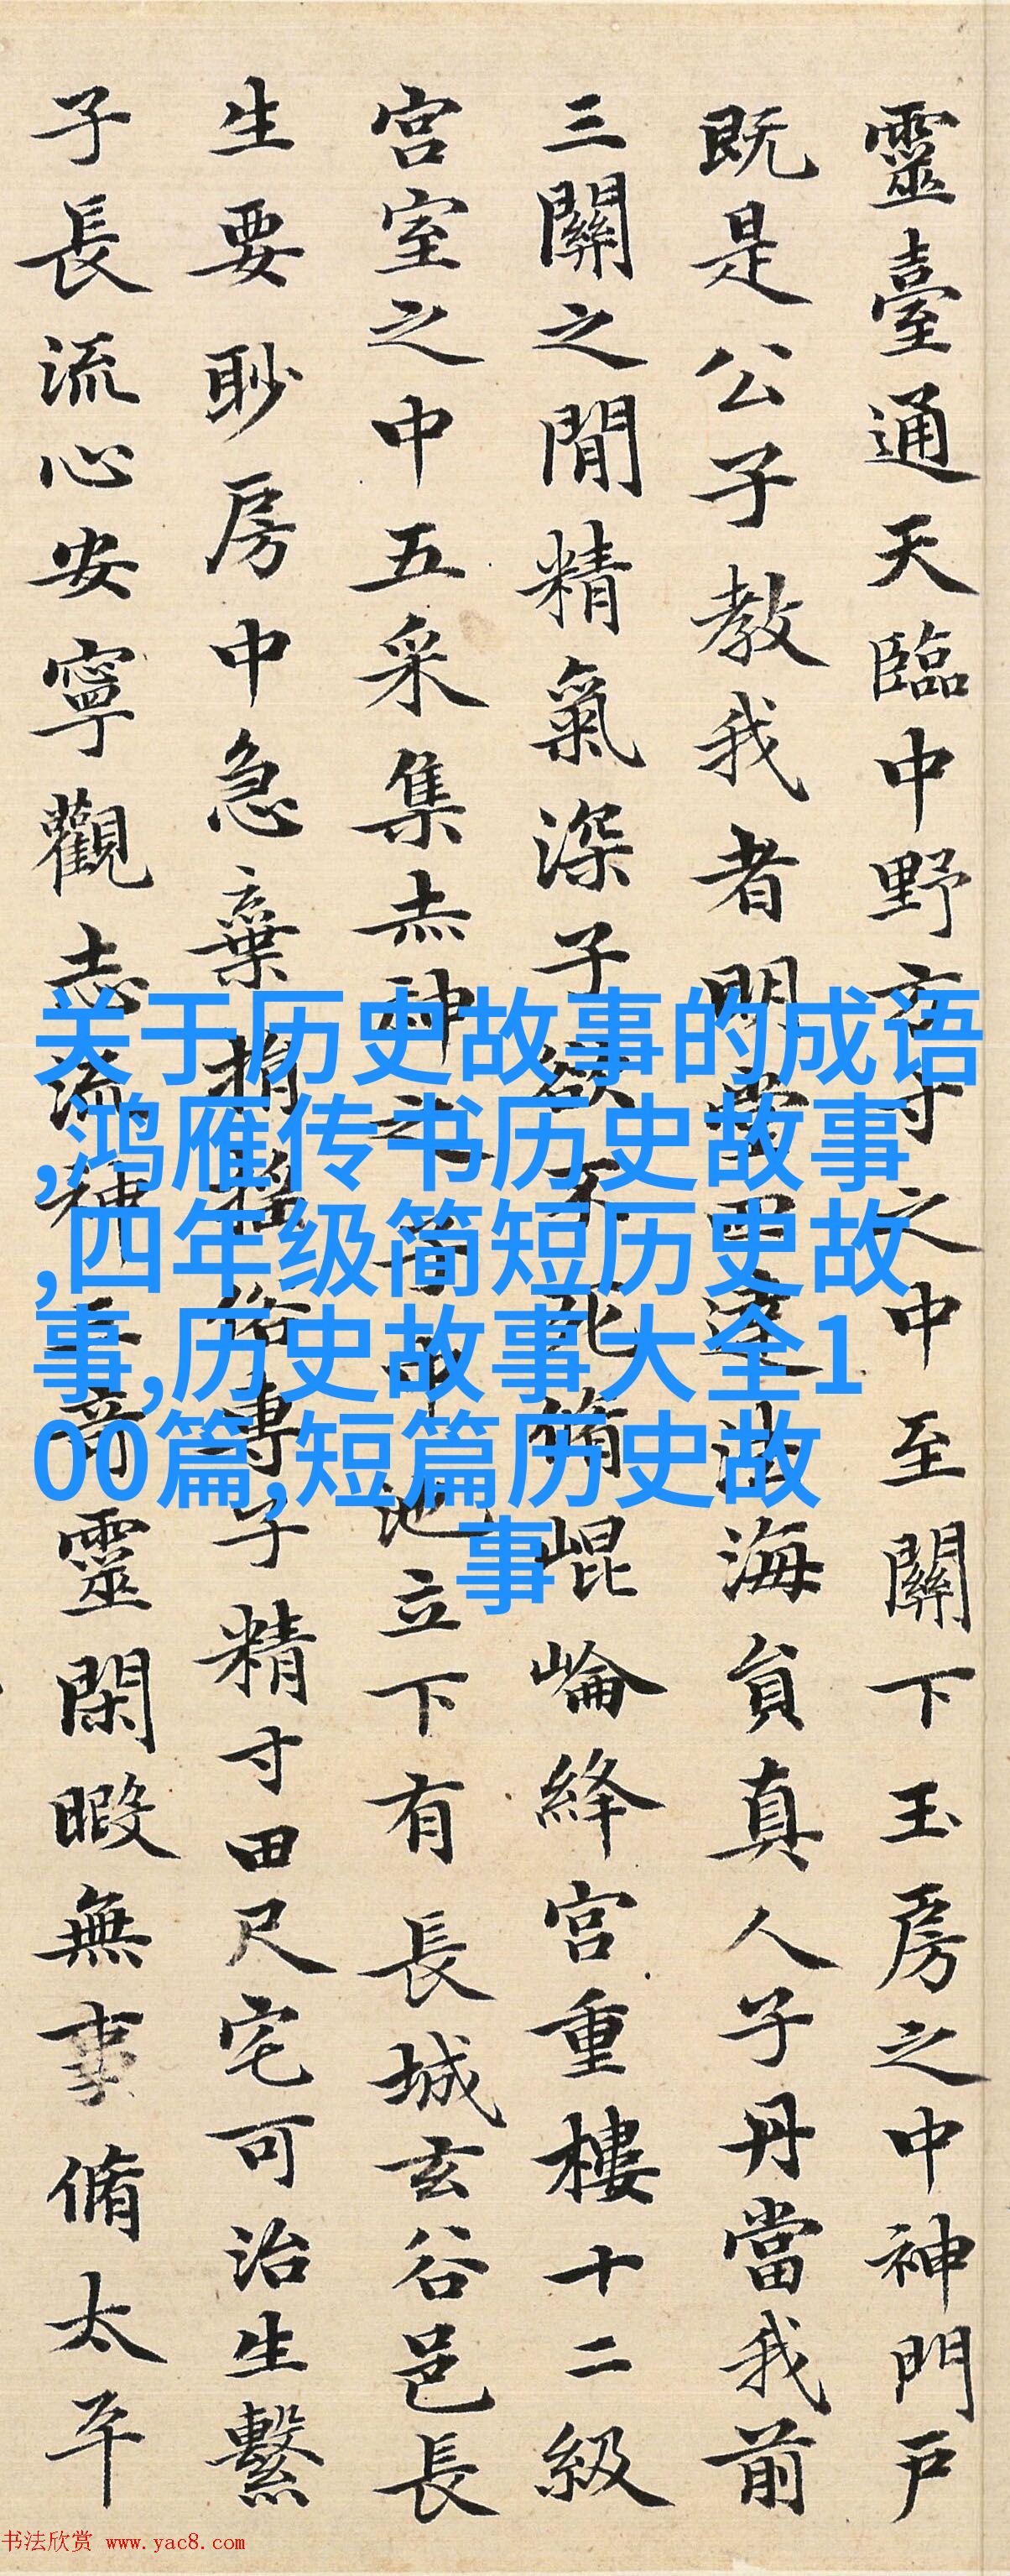 靈臺通天臨中野方寸之中至關下玉房之中神門戶
既是公子教我者明堂四達法海貟真人子丹當我前
三關之閒精氣深子欲不死脩崐崘絳宮重樓十二級
宮室之中五采集赤神之子中池立下有長城玄谷邑長
生要眇房中急棄捐搖俗專子精寸田尺宅可治生繫
子長流心安寧觀志流神三奇靈閑暇無事脩太平
关于历史故事的成语
,鸿雁传书历史故事
,四年级简短历史故
事,历史故事大全1
00篇,短篇历史故
事
书法欣赏 www.yac8.com